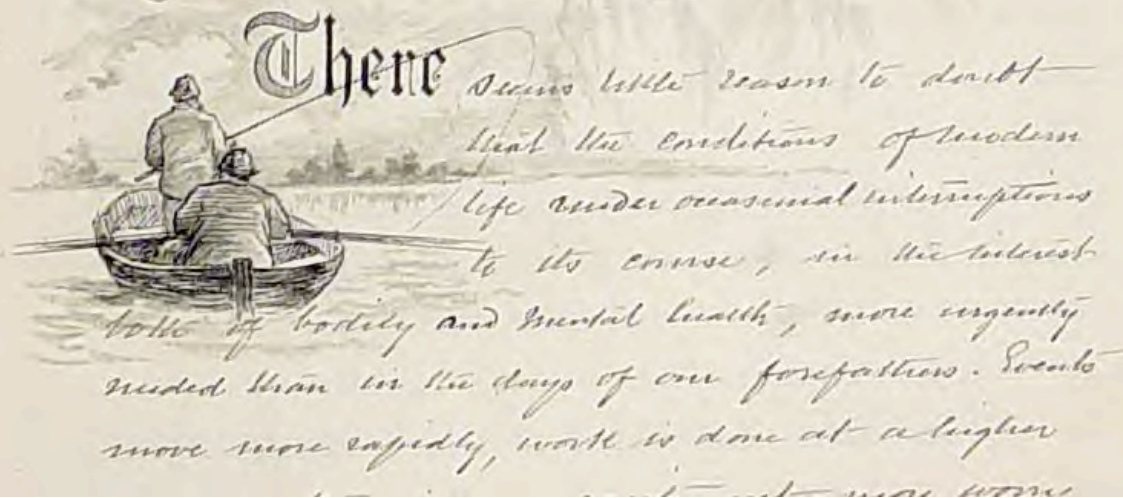 There seems little reason to doubt
that the conditions of modern
life render occasional interruptions
to its course, in the interest
both of bodily and mental health, more urgently
needed than in the days of our forefathers. Events
move more rapidly, work is done at a higher
more worry